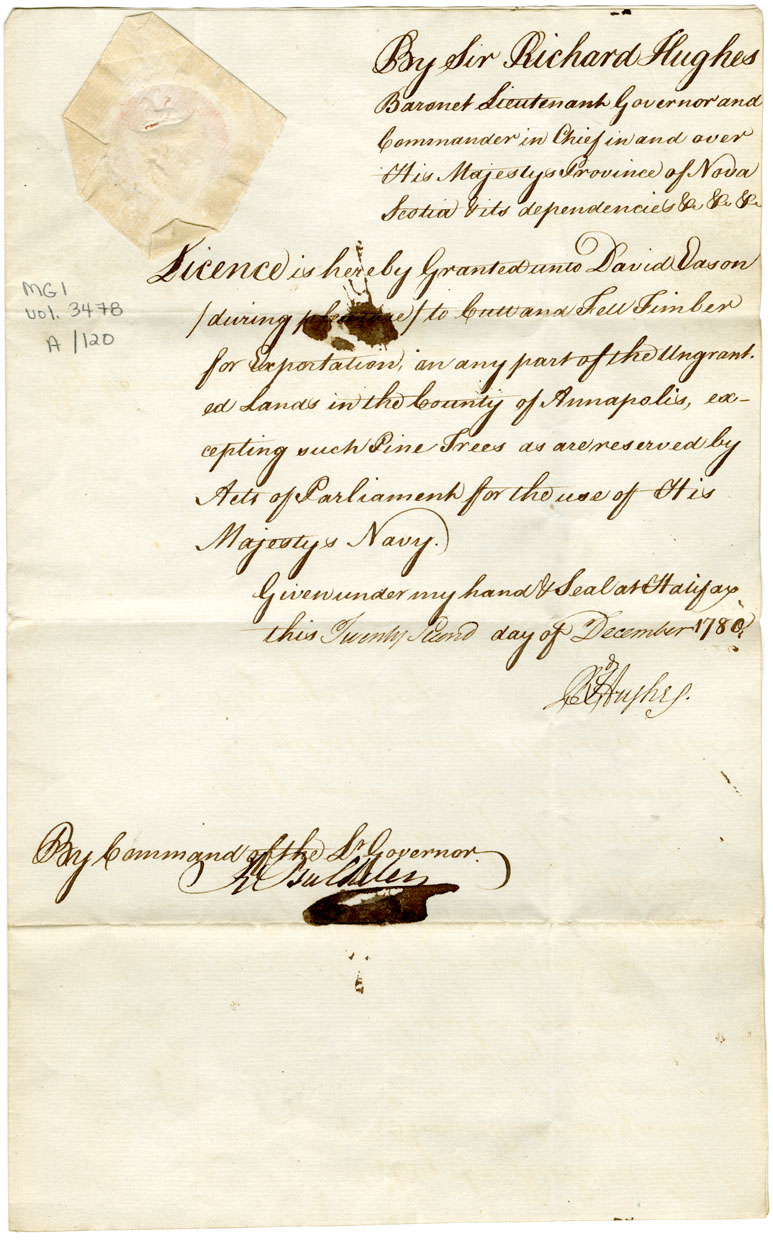 By Sir Richard Hughes
Baronet Lieutenant Governor and
Commander in Chief in and over
His Majestys Province of Nova
Scotia & its dependencies &c. &c. &c.
Licence is hereby Granted unto David Eason
/during pleasure/ to Cutt and Fell Timber
for Exportation, on any part of the Ungrant.
ed Lands in the County of Annapolis, ex-
cepting such Pine Trees as are reserved by
Acts of Parliament for the use of His
Majestys Navy.
Given under my hand & Seal at Halifax
this Twenty Second day of December 1780,
Rd Hughes.
By Command of the Lt Governor.
Rd Bulkeley
MG1
vol. 3478
A/120